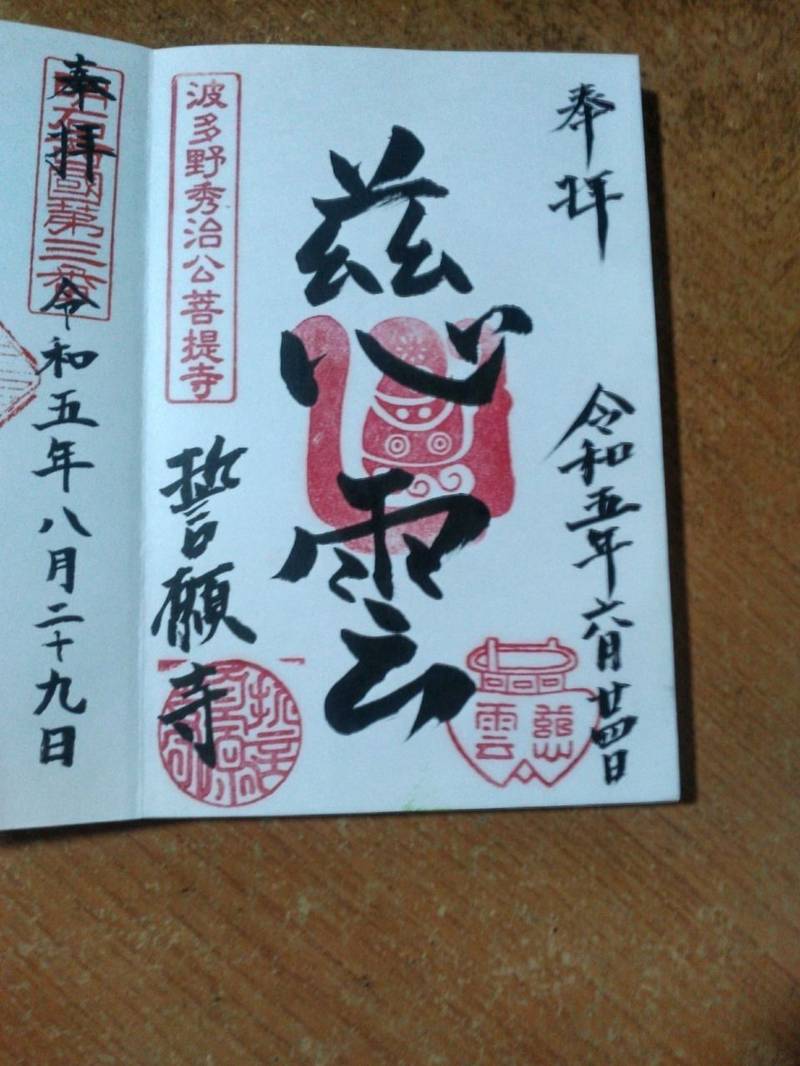 奉拝
令和五年六月廿四日
慈雲
慈雲
波多野秀治公菩提寺
誓願寺
奉拝
令和五年八月二十九日
國第三番